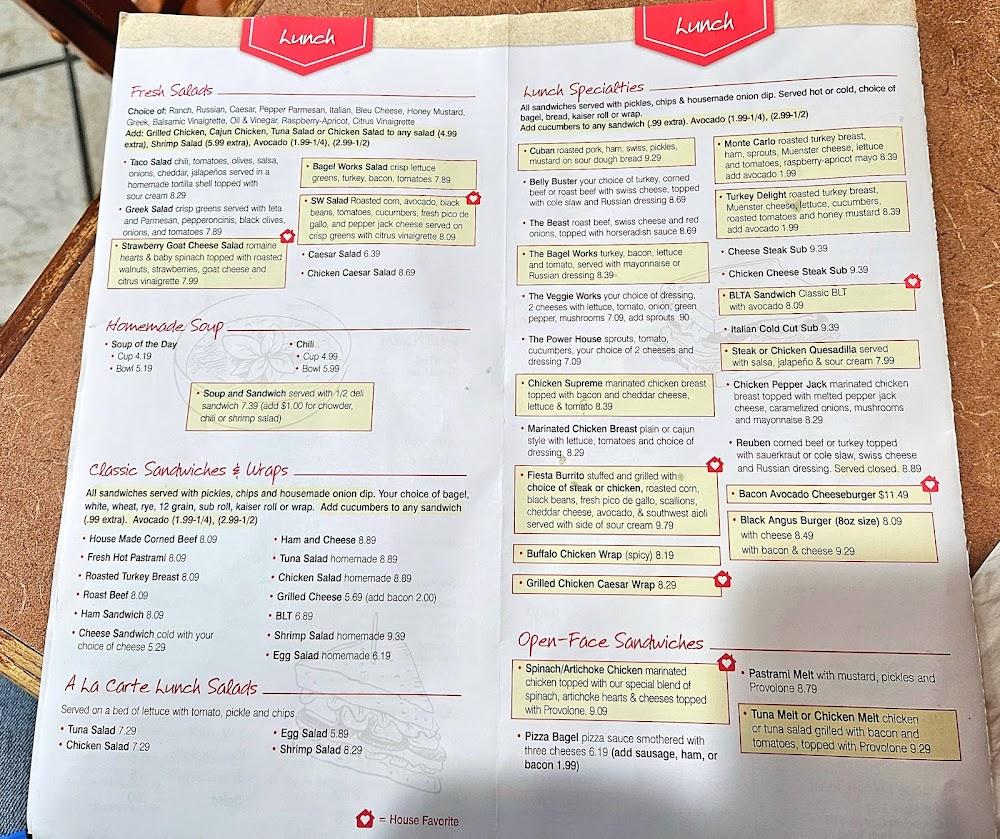 Lunch
Fresh Salads
Choice of: Ranch, Russian, Caesar, Pepper Parmesan, Italian, Bleu Cheese, Honey Mustard,
Greek, Balsamic Vinaigrette, Oil & Vinegar, Raspberry-Apricot, Citrus Vinaigrette
Add: Grilled Chicken, Cajun Chicken, Tuna Salad or Chicken Salad to any salad (4.99
extra), Shrimp Salad (5.99 extra), Avocado (1.99-1/4), (2.99-1/2)
• Taco Salad chili, tomatoes, olives, salsa,
onions, cheddar, jalapeños served in a
homemade tortilla shell topped with
sour cream 8.29
• Greek Salad crisp greens served with feta
and Parmesan, pepperoncinis, black olives,
onions, and tomatoes 7.89
• Strawberry Goat Cheese Salad romaine
hearts & baby spinach topped with roasted
walnuts, strawberries, goat cheese and
citrus vinaigrette 7.99
• Bagel Works Salad crisp lettuce
greens, turkey, bacon, tomatoes 7.89
• SW Salad Roasted corn, avocado, black
beans, tomatoes, cucumbers, fresh pico de
gallo, and pepper jack cheese served on
crisp greens with citrus vinaigrette 8.09
• Caesar Salad 6.39
• Chicken Caesar Salad 8.69
Homemade Soup
• Soup of the Day
• Cup 4.19
• Bowl 5.19
• Chili
• Cup 4.99
• Bowl 5.99
• Soup and Sandwich served with 1/2 deli
sandwich 7.39 (add $1.00 for chowder,
chili or shrimp salad)
Classic Sandwiches & Wraps
All sandwiches served with pickles, chips and housemade onion dip. Your choice of bagel,
white, wheat, rye, 12 grain, sub roll, kaiser roll or wrap. Add cucumbers to any sandwich
(.99 extra). Avocado (1.99-1/4), (2.99-1/2)
• House Made Corned Beef 8.09
• Fresh Hot Pastrami 8.09
• Roasted Turkey Breast 8.09
• Roast Beef 8.09
• Ham Sandwich 8.09
• Cheese Sandwich cold with your
choice of cheese 5.29
• Ham and Cheese 8.89
• Tuna Salad homemade 8.89
• Chicken Salad homemade 8.89
• Grilled Cheese 5.69 (add bacon 2.00)
• BLT 6.89
• Shrimp Salad homemade 9.39
• Egg Salad homemade 6.19
A La Carte Lunch Salads
Served on a bed of lettuce with tomato, pickle and chips
• Tuna Salad 7.29
• Chicken Salad 7.29
• Egg Salad 5.89
• Shrimp Salad 8.29
= House Favorite
Lunch
Lunch Specialties
All sandwiches served with pickles, chips & housemade onion dip. Served hot or cold, choice of
bagel, bread, kaiser roll or wrap.
Add cucumbers to any sandwich (.99 extra). Avocado (1.99-1/4), (2.99-1/2)
• Cuban roasted pork, ham, swiss, pickles,
mustard on sour dough bread 9.29
• Belly Buster your choice of turkey, corned
beef or roast beef with swiss cheese, topped
with cole slaw and Russian dressing 8.69
• The Beast roast beef, swiss cheese and red
onions, topped with horseradish sauce 8.69
• The Bagel Works turkey, bacon, lettuce
and tomato, served with mayonnaise or
Russian dressing 8.39
• The Veggie Works your choice of dressing,
2 cheeses with lettuce, tomato, onion, green
pepper, mushrooms 7.09, add sprouts .90
• The Power House sprouts, tomato,
cucumbers, your choice of 2 cheeses and
dressing 7.09
• Chicken Supreme marinated chicken breast
topped with bacon and cheddar cheese,
lettuce & tomato 8.39
• Marinated Chicken Breast plain or cajun
style with lettuce, tomatoes and choice of
dressing 8.29
• Fiesta Burrito stuffed and grilled with
choice of steak or chicken, roasted corn,
black beans, fresh pico de gallo, scallions,
cheddar cheese, avocado, & southwest aioli
served with side of sour cream 9.79
• Buffalo Chicken Wrap (spicy) 8.19
• Grilled Chicken Caesar Wrap 8.29
• Monte Carlo roasted turkey breast,
ham, sprouts, Muenster cheese, lettuce
and tomatoes, raspberry-apricot mayo 8.39
add avocado 1.99
• Turkey Delight roasted turkey breast,
Muenster cheese, lettuce, cucumbers,
roasted tomatoes and honey mustard 8.39
add avocado 1.99
• Cheese Steak Sub 9.39
• Chicken Cheese Steak Sub 9.39
• BLTA Sandwich Classic BLT
with avocado 8.09
• Italian Cold Cut Sub 9.39
• Steak or Chicken Quesadilla served
with salsa, jalapeño & sour cream 7.99
• Chicken Pepper Jack marinated chicken
breast topped with melted pepper jack
cheese, caramelized onions, mushrooms
and mayonnaise 8.29
• Reuben corned beef or turkey topped
with sauerkraut or cole slaw, swiss cheese
and Russian dressing. Served closed. 8.89
• Bacon Avocado Cheeseburger $11.49
• Black Angus Burger (8oz size) 8.09
with cheese 8.49
with bacon & cheese 9.29
Open-Face Sandwiches
• Spinach/Artichoke Chicken marinated
chicken topped with our special blend of
spinach, artichoke hearts & cheeses topped
with Provolone. 9.09
• Pizza Bagel pizza sauce smothered with
three cheeses 6.19 (add sausage, ham, or
bacon 1.99)
• Pastrami Melt with mustard, pickles and
Provolone 8.79
• Tuna Melt or Chicken Melt chicken
or tuna salad grilled with bacon and
tomatoes, topped with Provolone 9.29